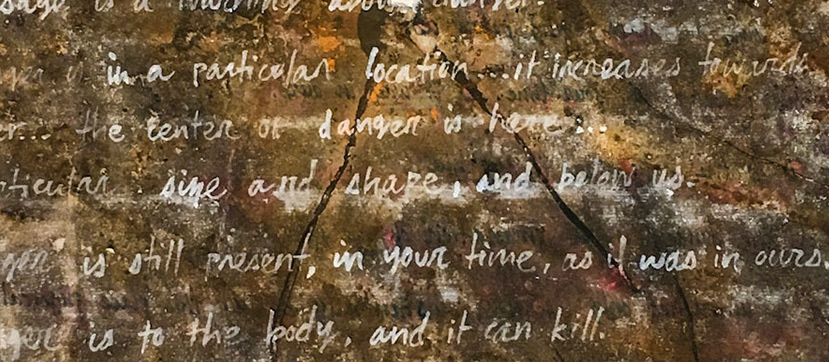 is a warning about danger.
is in a particular location...it increases towards
er... the center of danger is here...
ticular size and shape, and below us.
ger is still present, in your time, as it was in ours.
ger is to the body, and it can kill.